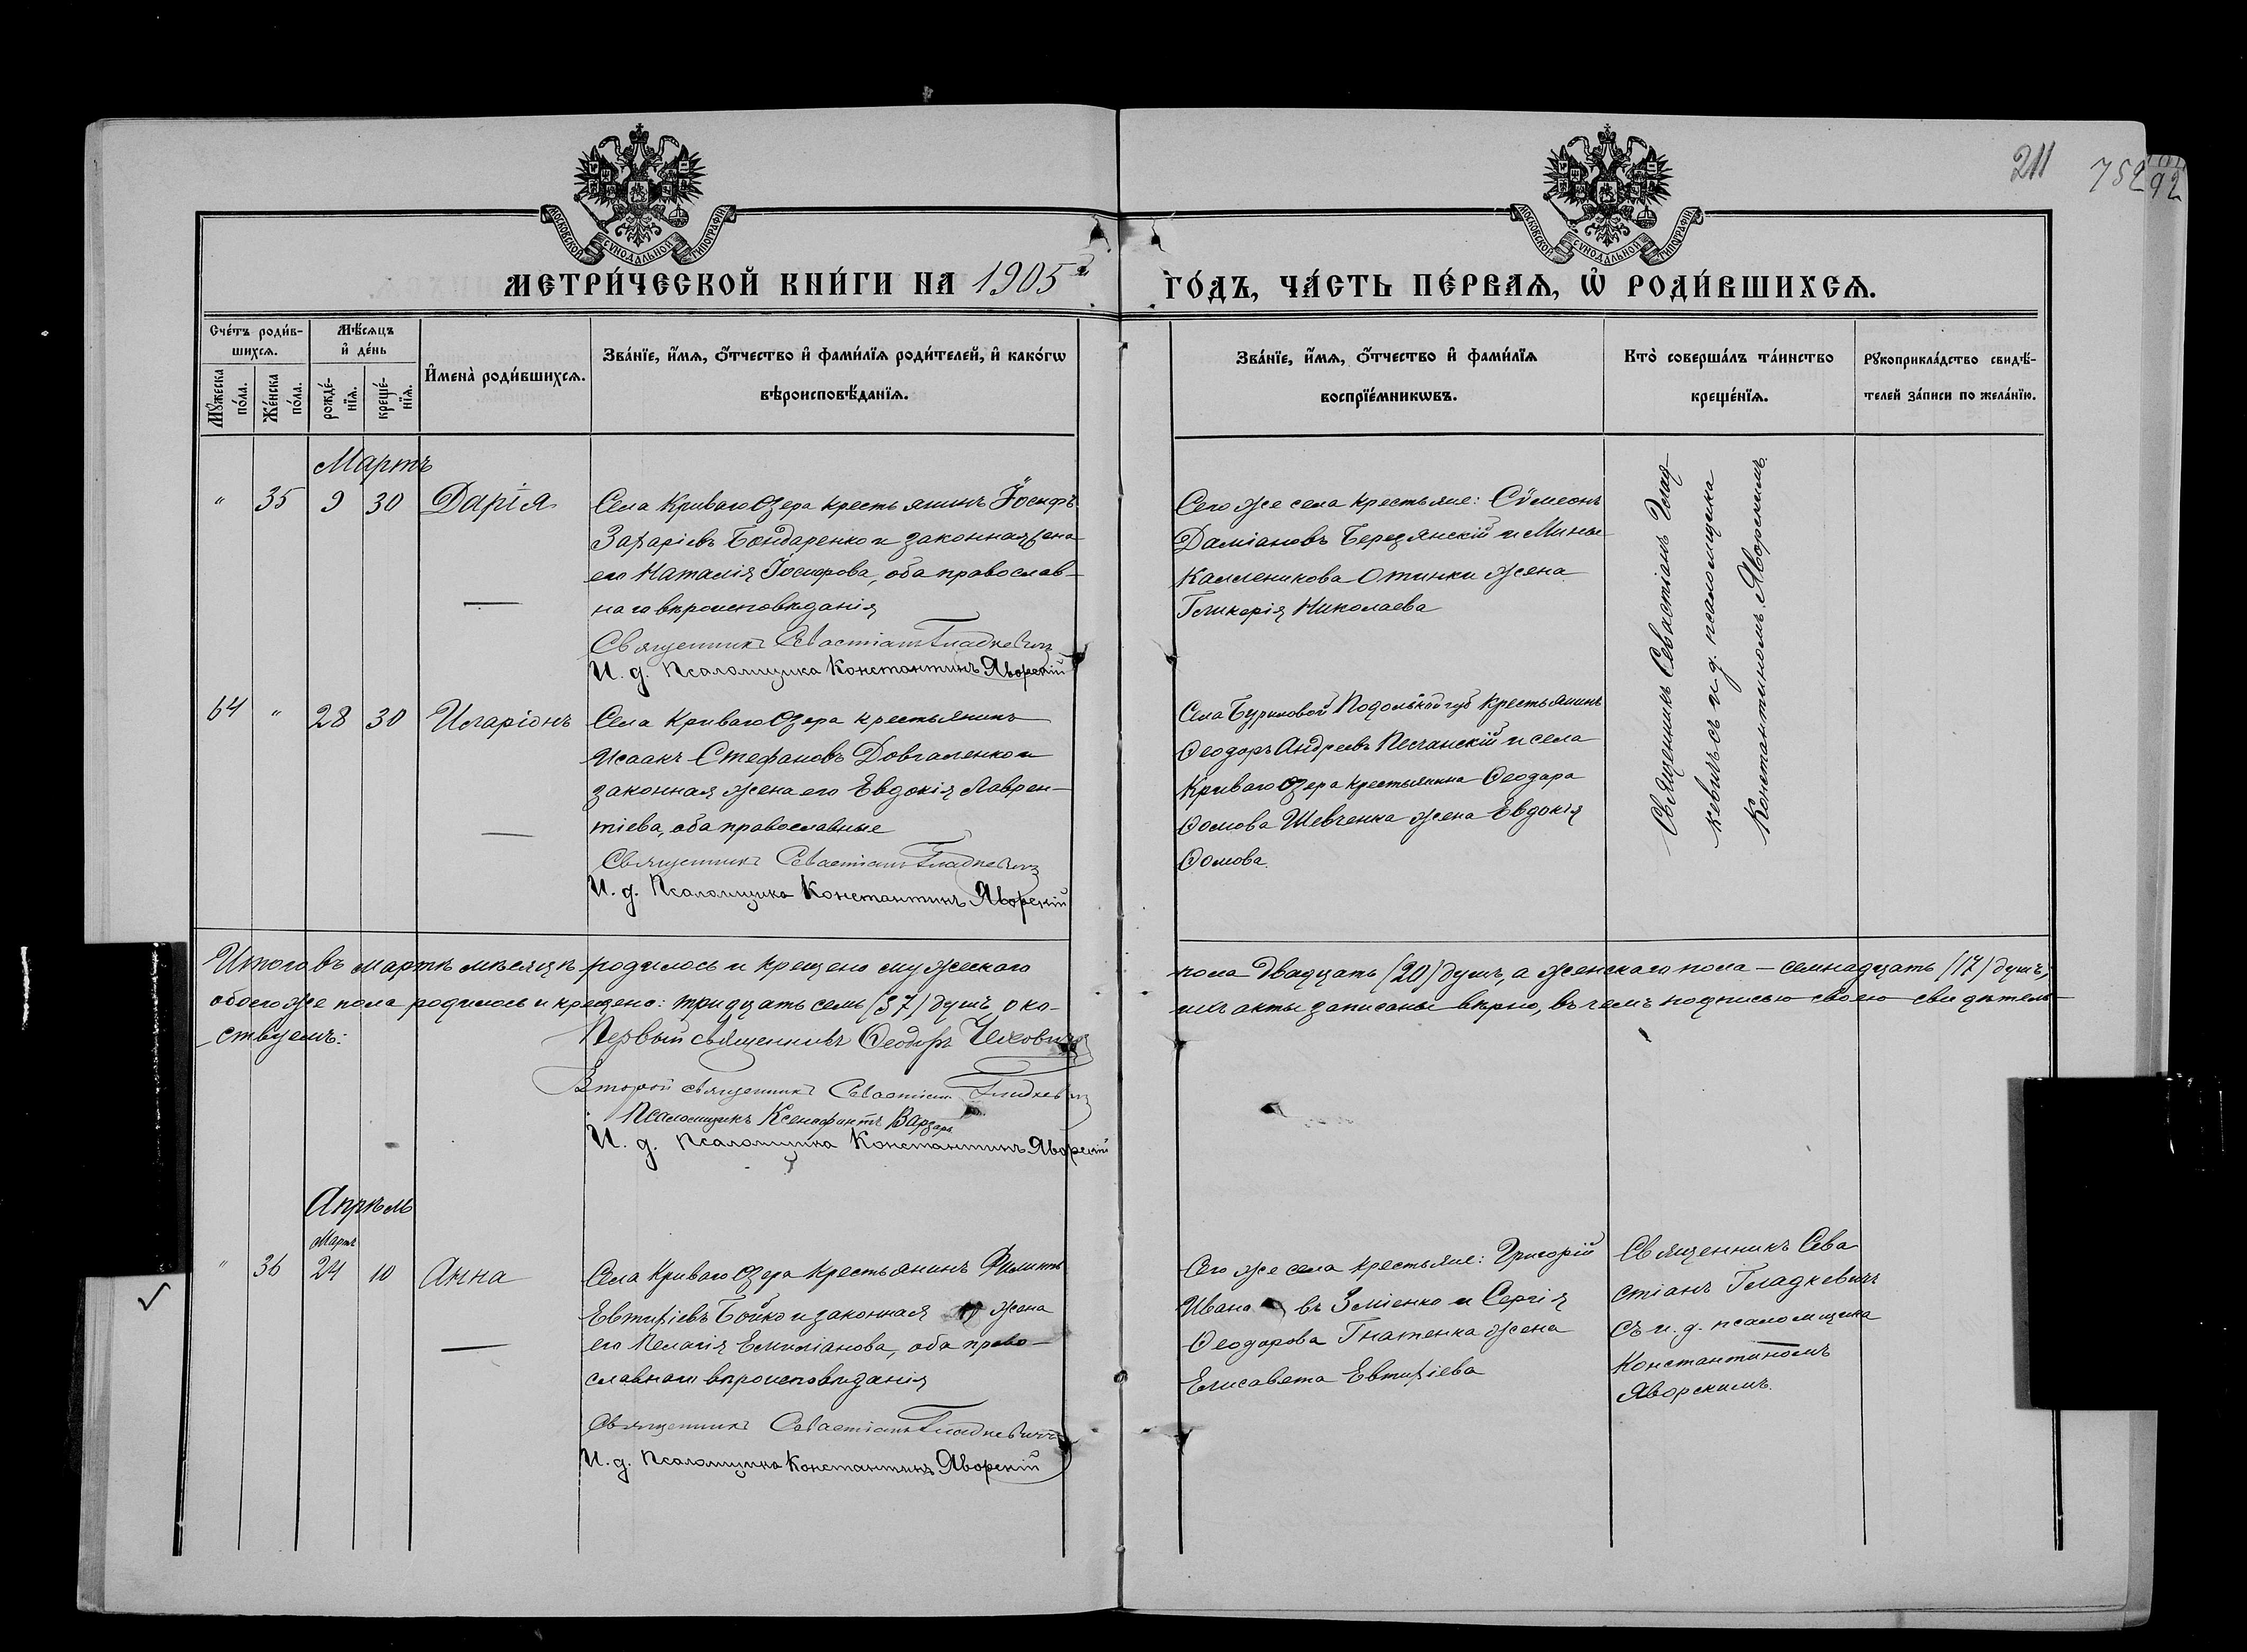 211 752 92
МОСКОВСКОЙ СУНОДАЛЬНОЙ ТИПОГРАФІИ
МОСКОВСКОЙ СУНОДАЛЬНОЙ ТИПОГРАФІИ
МЕТРИ́ЧЕСКОЙ КНИ́ГИ НА 1905й ГО́ДЪ, ЧА́СТЬ ПЕ́РВАѦ, Ѽ РОДИ́ВШИХСѦ.
Сче́тъ роди́в-
шихсѧ.
Мꙋ́жеска по́ла.
Же́нска по́ла.
Мѣ́сѧцъ
и҆ де́нь
рожде́-нїѧ.
креще́-нїѧ.
И҆мена̀ роди́вшихсѧ.
Зва́нїе, и҆́мѧ, ѻ҆́тчество и҆ фами́лїѧ роди́телей, и҆ како́гѡ
вѣроисповѣ́данїѧ.
Зва́нїе, и҆́мѧ, ѻ҆́тчество и҆ фами́лїѧ
воспрїе́мникѡвъ.
Кто̀ соверша́лъ та́инство
креще́нїѧ.
Рꙋкоприкла́дство свидѣ́-
телей за́писи по жела́нїю.
Мартъ
" 35 9 30 Дарія
Села Криваго Озера крестьянинъ Іосифъ
Захаріевъ Бондаренко и законная жена
его Наталія Іосифова, оба православ-
наго вѣроисповѣданія
Священникъ Севастіанъ Гладкевичъ
И. д. Псаломщика Константинъ Яворскій
Сего же села крестьяне: Сѵмеонъ
Даміановъ Березянскій и Мины
Гликерія Николаева
Священникъ Севастіанъ Глад-
кевичъ съ и. д. псаломщика
Константиномъ Яворскимъ.
64 " 28 30 Иларіонъ
Села Криваго Озера крестьянинъ
Исаакъ Стефановъ Довгаленко и
законная жена его Евдокія Лаврен-
тіева, оба православные
Священникъ Севастіанъ Гладкевичъ
И. д. Псаломщика Константинъ Яворскій
Села Буриловой Подольской губ крестьянинъ
Ѳеодоръ Андреевъ Песчанскій и села
Криваго Озера крестьянина Ѳеодора
Ѳомова Шевченка жена Евдокія
Ѳомова.
Итого въ мартѣ мѣсяцѣ родилось и крещено мужескаго пола двадцать (20) душъ, а женскаго пола – семнадцать (17) душъ,
обоего же пола родилось и крещено: тридцать семь (37) душъ, о ко- ихъ акты записаны вѣрно, въ чемъ подписью своею свидѣтель-
ствуемъ:
Первый священникъ Ѳеодоръ Чеховичъ
Второй священникъ Севастіанъ Гладкевичъ
Псаломщикъ Ксенофонтъ Варзарь
И. д. Псаломщика Константинъ Яворскій
Апрѣль
Мартъ
" 36 24 10 Анна
Села Криваго Озера крестьянинъ Филиппъ
Евтихіевъ Бойко и законная жена
его Пелагія Емиліанова, оба право-
славнаго вѣроисповѣданія
Священникъ Севастіанъ Гладкевичъ
И. д. Псаломщика Константинъ Яворскій
Сего же села крестьяне: Григорій
Ивановъ Зміенко и Сергія
Ѳеодорова Гнатенка жена
Елисавета Евтихіева
Священникъ Сева
стіанъ Гладкевичъ
съ и. д. псаломщика
Константиномъ
Яворскимъ.